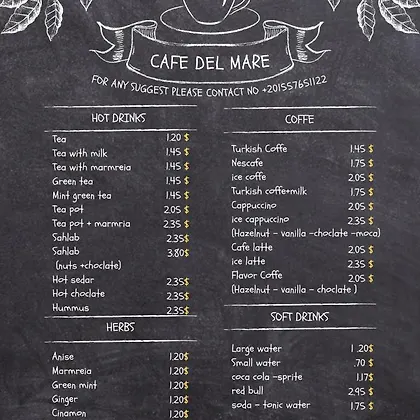 CAFE DEL MARE
FOR ANY SUGGEST PLEASE CONTACT NO +201557651122
HOT DRINKS
Tea 1.20 $
Tea with milk 1.45 $
Tea with marmreia 1.45 $
Green tea 1.45 $
Mint green tea 1.45 $
Tea pot 2.05 $
Tea pot + marmria 2.35 $
Sahlab 2.35$
Sahlab 3.80$
(nuts +choclate)
Hot sedar 2.35$
Hot choclate 2.35$
Hummus 2.35$
HERBS
Anise 1.20$
Marmreia 1.20$
Green mint 1.20$
Ginger 1.20$
Cinamon 1.20$
COFFE
Turkish Coffe 1.45 $
Nescafe 1.75 $
ice coffe 2.05 $
Turkish coffe+milk 1.75 $
Cappuccino 2.05 $
ice cappuccino 2.35 $
(Hazelnut - vanilla -choclate -moca)
Cafe latte 2.05 $
ice latte 2.35 $
Flavor Coffe 2.05 $
(Hazelnut - vanilla - choclate )
SOFT DRINKS
Large water 1 .20$
Small water .70 $
coca cola -sprite 1.17$
red bull 2.95 $
soda - tonic water 1.75 $